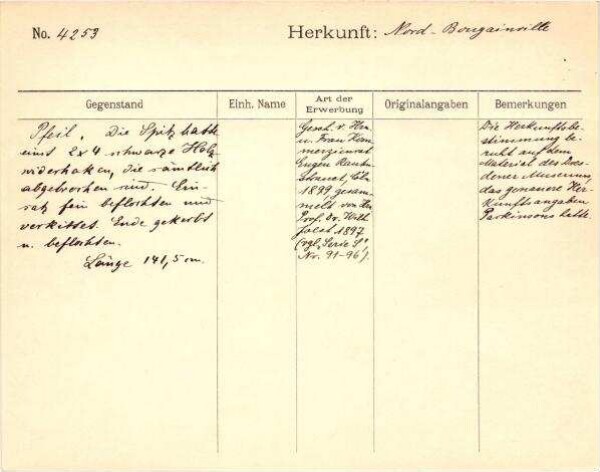 No. 4253
Herkunft: Nord-Bougainville
Gegenstand
Einh. Name
Art der
Erwerbung
Originalangaben
Bemerkungen
Pfeil. Die Spitz hatte
einst 2x4 schwarze Holz
widerhaken, die sämtlich
abgebrochen sind. Ein-
satz fein beflochten und
verkittet. Ende gekerbt
u. beflochten.
Länge 141,5 cm.
Gesch. v. Hrn.
u. Frau Kom-
merzienrat
Eugen Rauten-
strauch, Cöln
1899 gesam-
melt von Hrn.
Prof. Dr. Wilh.
Joest 1897
(vgl. "Serie S",
Nr. 91-96).
Die Herkunftsbe-
stimmung be-
ruht auf dem
Material des Dres-
dener Museums,
das genauere Her-
kunftsangaben
Parkinsons hatte.